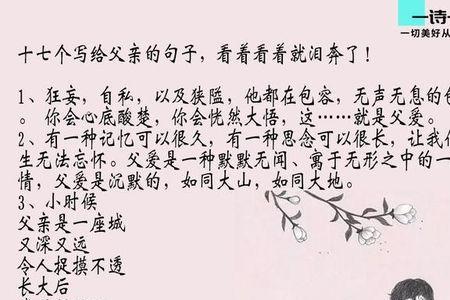 一诗
一切美好从
十七个写给父亲的句子，看着看着就泪奔了！
1、狂妄，自私，以及狭隘，他都在包容，无声无息的
。你会心底酸楚，你会恍然大悟，这……就是父爱。
2、有一种记忆可以很久，有一种思念可以很长，让我
生无法忘怀。父爱是一种默默无闻、寓于无形之中的一
情，父爱是沉默的，如同大山，如同大地。
3、小时候
父亲是一座城
又深又远
令人捉摸不透
长大后